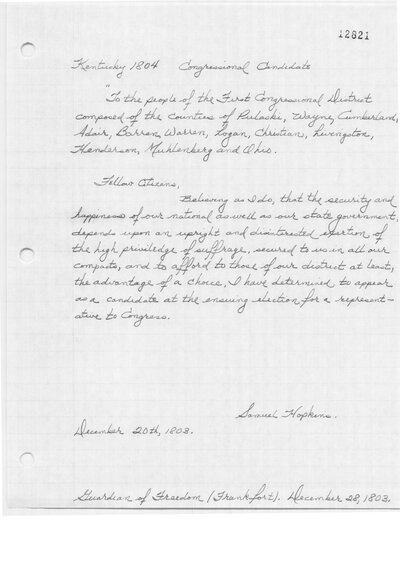 12821
Kentucky 1804 Congressional Candidate
"To the people of the First Congressional District
composed of the Counties of Pulaski, Wayne, Cumberland,
Adair, Barren, Warren, Logan, Christian, Livingston,
Henderson, Muhlenberg and Ohio.
Fellow Citizens,
Believing as I do, that the security and
happiness of our national as well as our state government,
depends upon an upright and disinterested exertion of
the high priviledge of suffrage, secured to us in all our
compacts, and to afford to those of our district at least,
the advantage of a choice, I have determined to appear
as a candidate at the ensuing election for a represent-
ative to Congress.
Samuel Hopkins.
December 20th, 1803.
Guardian of Freedom (Frankfort). December 28, 1803.